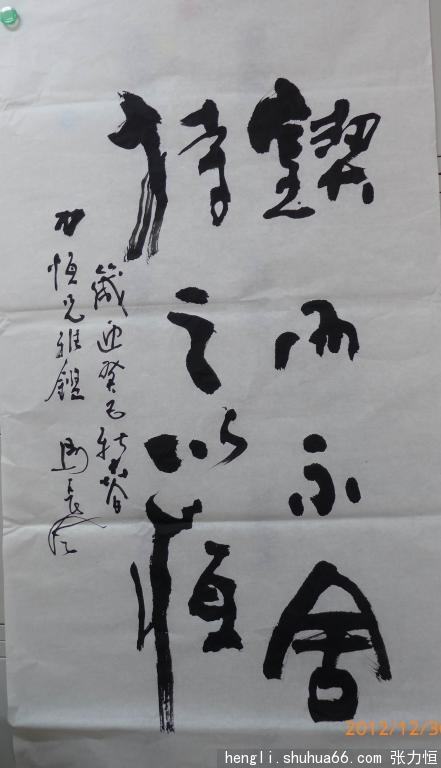 鍥而不舍
持之以恒
歲迎癸巳新春
力恒兄雅鑑
2012/12/30
hengli.shuhua66.com 张力恒